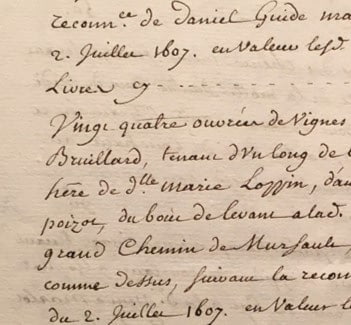 reconn.ce de daniel Guide ma
2. Juillet 1607. en Valeur lesd.
Livres cy - - - - - - - - -
Vingt quatre ouvrées de Vignes
Bruillard, tenant d'un long de
hëre de d.lle marie Loppin, d'au
poizot, du bout de levant a lad.
grand Chemin de Mursault,
comme dessus, suivant la recon
du 2. Juillet 1607. en Valeur le